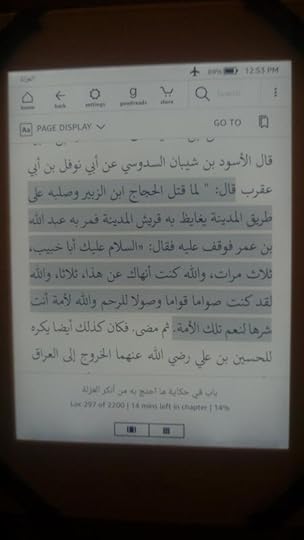 العزلة
89% 12:53 PM
home back settings goodreads store Search
Aa PAGE DISPLAY GO TO
قال الأسود بن شيبان السدوسي عن أبي نوفل بن أبي
عقرب قال: " لما قتل الحجاج ابن الزبير وصلبه على
طريق المدينة يغايظ به قريش المدينة فمر به عبد الله
بن عمر فوقف عليه فقال: «السلام عليك أبا خبيب،
ثلاث مرات، والله كنت أنهاك عن هذا، ثلاثا، والله
لقد كنت صواما قواما وصولا للرحم والله لأمة أنت
شرها لنعم تلك الأمة. ثم مضى. فكان كذلك أيضا يكره
للحسين بن علي رضي الله عنهما الخروج إلى العراق
باب في حكاية ما احتج به من أنكر العزلة
Loc 297 of 2200 | 14 mins left in chapter | 14%